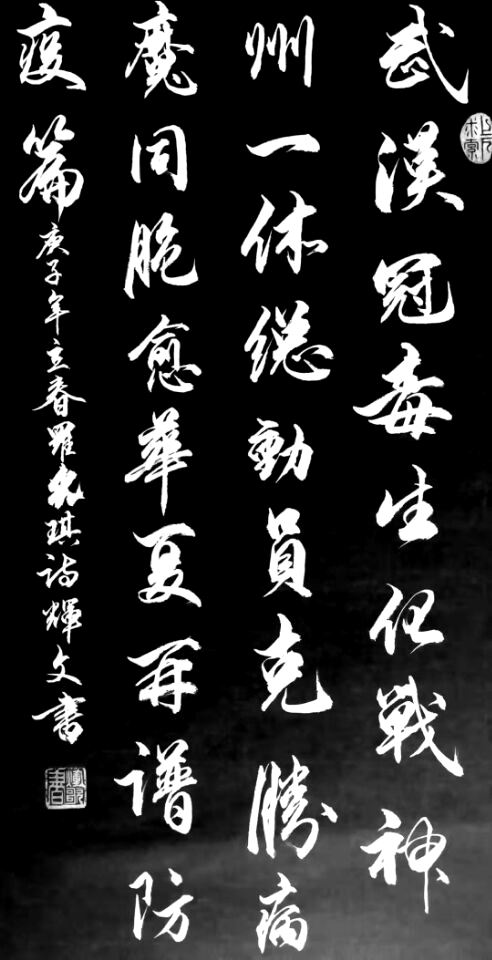 武漢冠毒生化戰神
州一体總動員克勝病
魔同脆愈華夏再譜防
疫篇
庚子年立春羅允琪詩輝文書